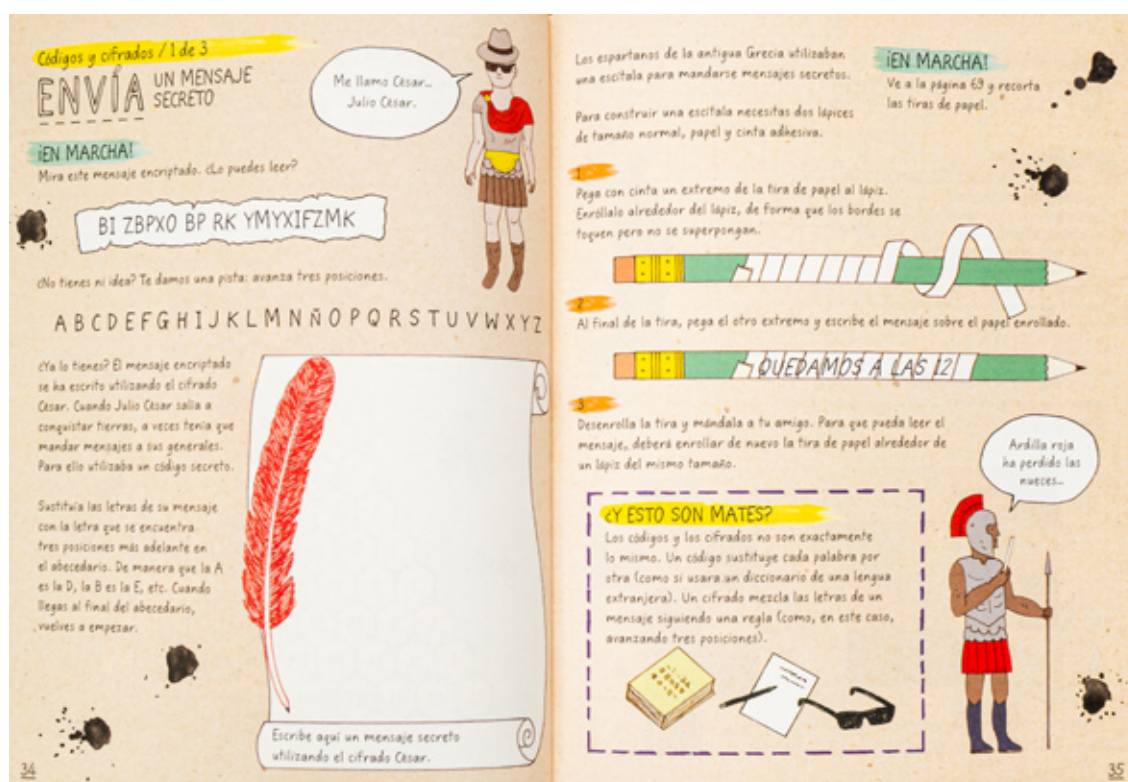 Códigos y cifrados / 1 de 3
ENVÍA UN MENSAJE
SECRETO
Me llamo César...
Julio César.
¡EN MARCHA!
Mira este mensaje encriptado. ¿Lo puedes leer?
BI ZBPXO BP RK YMYXIFZMK
¿No tienes ni idea? Te damos una pista: avanza tres posiciones.
A B C D E F G H I J K L M N Ñ O P Q R S T U V W X Y Z
¿Ya lo tienes? El mensaje encriptado
se ha escrito utilizando el cifrado
César. Cuando Julio César salía a
conquistar tierras, a veces tenía que
mandar mensajes a sus generales.
Para ello utilizaba un código secreto.
Sustituía las letras de su mensaje
con la letra que se encuentra
tres posiciones más adelante en
el abecedario. De manera que la A
es la D, la B es la E, etc. Cuando
llegas al final del abecedario,
vuelves a empezar.
Escribe aquí un mensaje secreto
utilizando el cifrado César.
34
Los espartanos de la antigua Grecia utilizaban
una escítala para mandarse mensajes secretos.
Para construir una escítala necesitas dos lápices
de tamaño normal, papel y cinta adhesiva.
¡EN MARCHA!
Ve a la página 69 y recorta
las tiras de papel.
1
Pega con cinta un extremo de la tira de papel al lápiz.
Enróllalo alrededor del lápiz, de forma que los bordes se
toquen pero no se superpongan.
2
Al final de la tira, pega el otro extremo y escribe el mensaje sobre el papel enrollado.
QUEDAMOS A LAS 12
3
Desenrolla la tira y mándala a tu amigo. Para que pueda leer el
mensaje, deberá enrollar de nuevo la tira de papel alrededor de
un lápiz del mismo tamaño.
Ardilla roja
ha perdido las
nueces...
¿Y ESTO SON MATES?
Los códigos y los cifrados no son exactamente
lo mismo. Un código sustituye cada palabra por
otra (como si usara un diccionario de una lengua
extranjera). Un cifrado mezcla las letras de un
mensaje siguiendo una regla (como, en este caso,
avanzando tres posiciones).
35